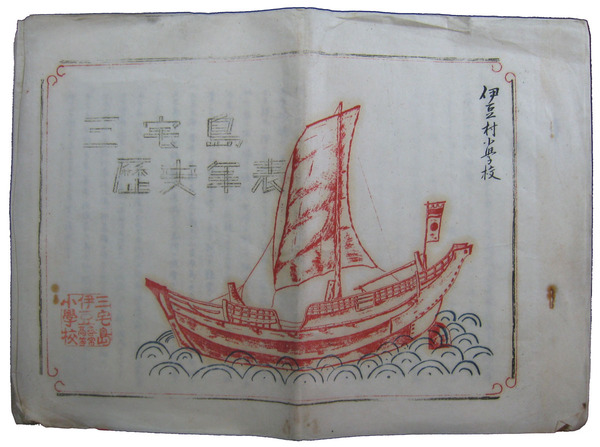 三宅島
歷史年表
伊豆村小學校
三宅島
伊
小學校